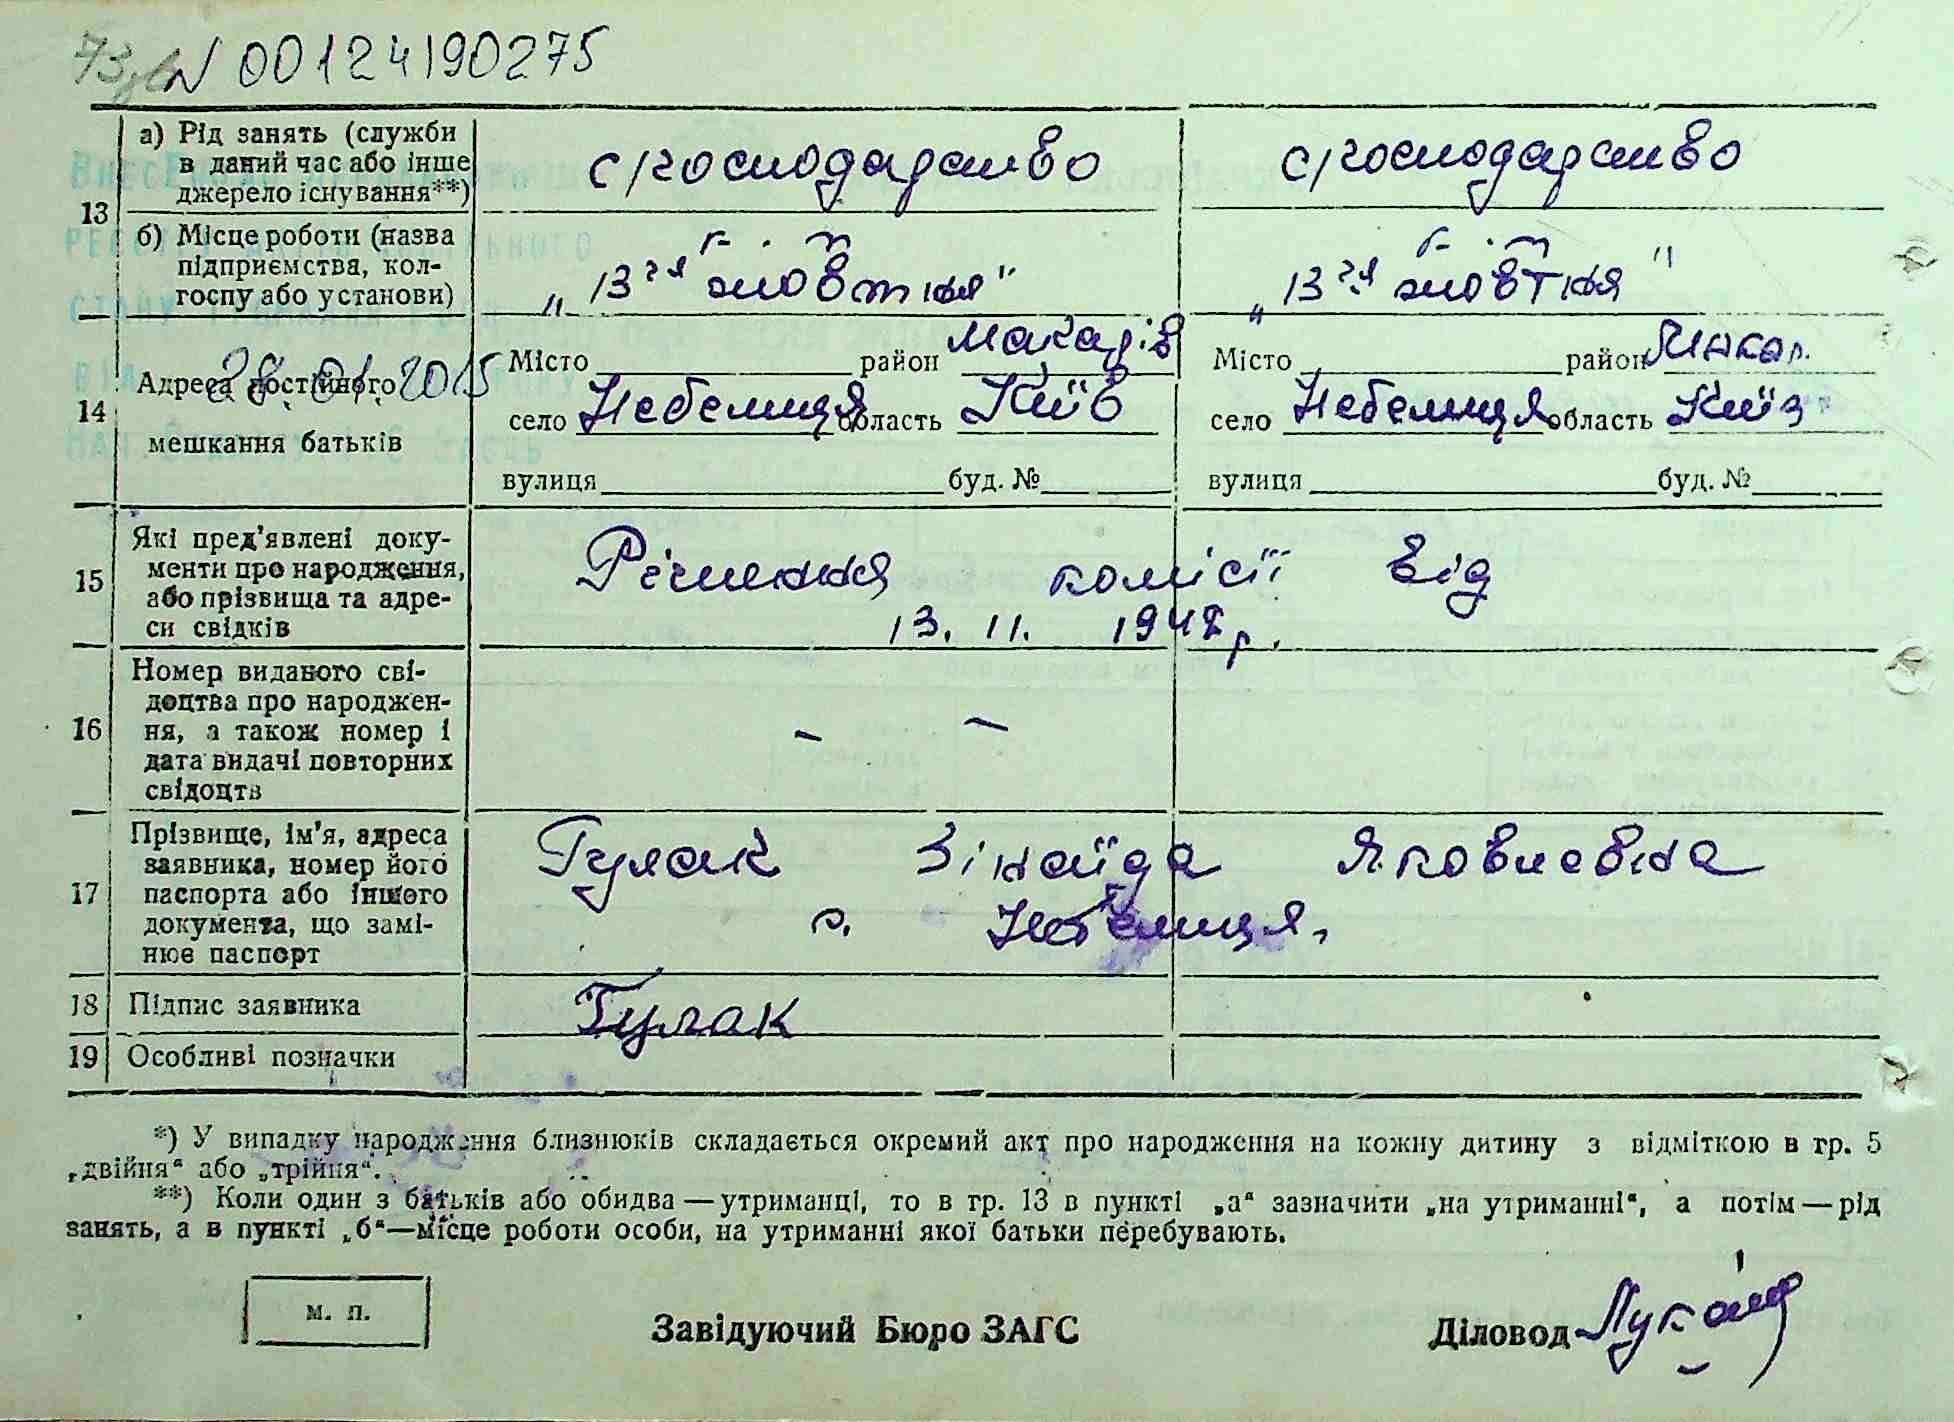 73 зв N 00124190275
13
а) Рід занять (служби
в даний час або інше
джерело існування**)
с/господарство
с/господарство
б) Місце роботи (назва
підприємства, кол-
госпу або установи)
к-г. ім
„13 чя жовтня"
к-г. ім
„13 чя жовтня"
28.01.2015
14
Адреса постійного
мешкання батьків
Місто район Макарів
село Небелиця область Київ
вулиця буд. №
Місто район Макар.
село Небелиця область Київ
вулиця буд. №
15
Які пред'явлені доку-
менти про народження,
або прізвища та адре-
си свідків
Рішення комісії від
13. 11. 1948 р.
16
Номер виданого сві-
доцтва про народжен-
ня, а також номер і
дата видачі повторних
свідоцтв
– –
17
Прізвище, ім'я, адреса
заявника, номер його
паспорта або іншого
документа, що замі-
нює паспорт
Гулак Зінаїда Яковлевна
с. Небелиця,
18 Підпис заявника
Гулак
19 Особливі позначки
*) У випадку народження близнюків складається окремий акт про народження на кожну дитину з відміткою в гр. 5
„двійня" або „трійня".
**) Коли один з батьків або обидва — утриманці, то в гр. 13 в пункті „а" зазначити „на утриманні", а потім — рід
занять, а в пункті „б"—місце роботи особи, на утриманні якої батьки перебувають.
м. п.
Завідуючий Бюро ЗАГС
Діловод